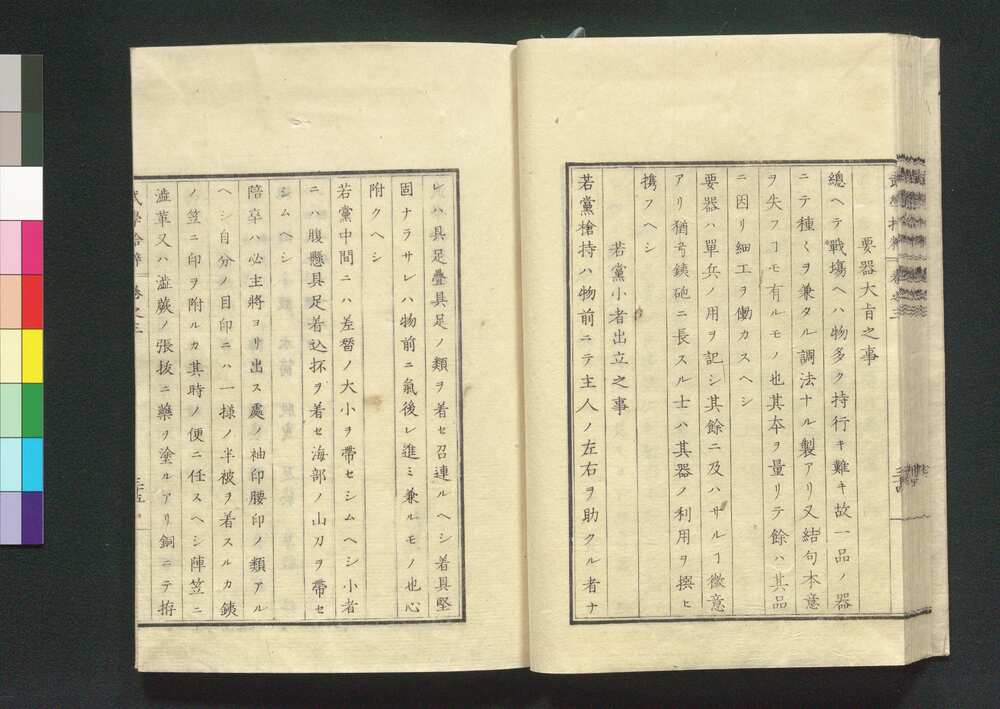 要器大肯之事
總ヘテ戰塲ヘハ物多ク持行キ難キ故一品ノ器
ニテ種〻ヲ兼タル調法ナル製アリ又結句本意
ヲ失フヿモ有ルモノ也其本ヲ量リテ餘ハ其品
ニ因リ細工ヲ働カスヘシ
要器ハ單兵ノ用ヲ記シ其餘ニ及ハサルヿ徴意
アリ猶弓銕砲ニ長スル士ハ其器ノ利用ヲ撰ヒ
携フヘシ
若黨小者出立之事
若黨槍持ハ物前ニテ主人ノ左右ヲ助クル者ナ
レハ具足疊具足ノ類ヲ着セ召連ルヘシ着具堅
固ナラサレハ物前ニ氣後レ進ミ兼ルモノ也心
附クヘシ
若黨中間ニハ差替ノ大小ヲ帶セシムヘシ小者
ニハ腹懸具足着込抔ヲ着セ海部ノ山刀ヲ帶セ
シムヘシ
陪卒ハ必主將ヨリ出ス處ノ袖印腰印ノ類アル
ヘシ自分ノ目印ニハ一樣ノ半被ヲ着スルカ銕
ノ笠ニ印ヲ附ルカ其時ノ便ニ任スヘシ陣笠ニ
澁革又ハ澁蕨ノ張抜ニ藥ヲ塗ルアリ銅ニテ拵
三十五